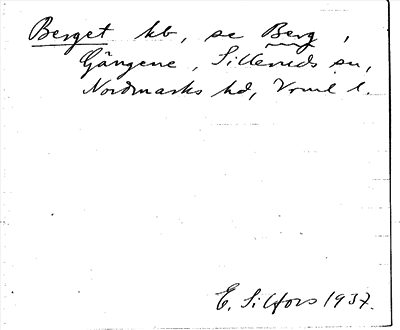 Berget kb, se Berg,
Gängene, Silleruds sn,
Nordmarks hd, Vrml l.
E. Silfors 1937.